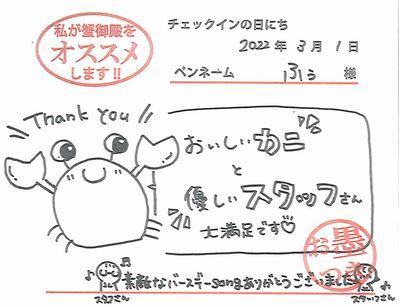 私が蟹御殿を
オススメ
します!!
チェックインの日にち
2022年 3月 1日
ペンネーム ふぅ 様
Thank you!!
おいしいカニ
と
優しいスタッフさん
大満足です♡
お墨つき
♪ 素敵なバースデーsongありがとうございました ♪
スタッフさん
スタッフさん